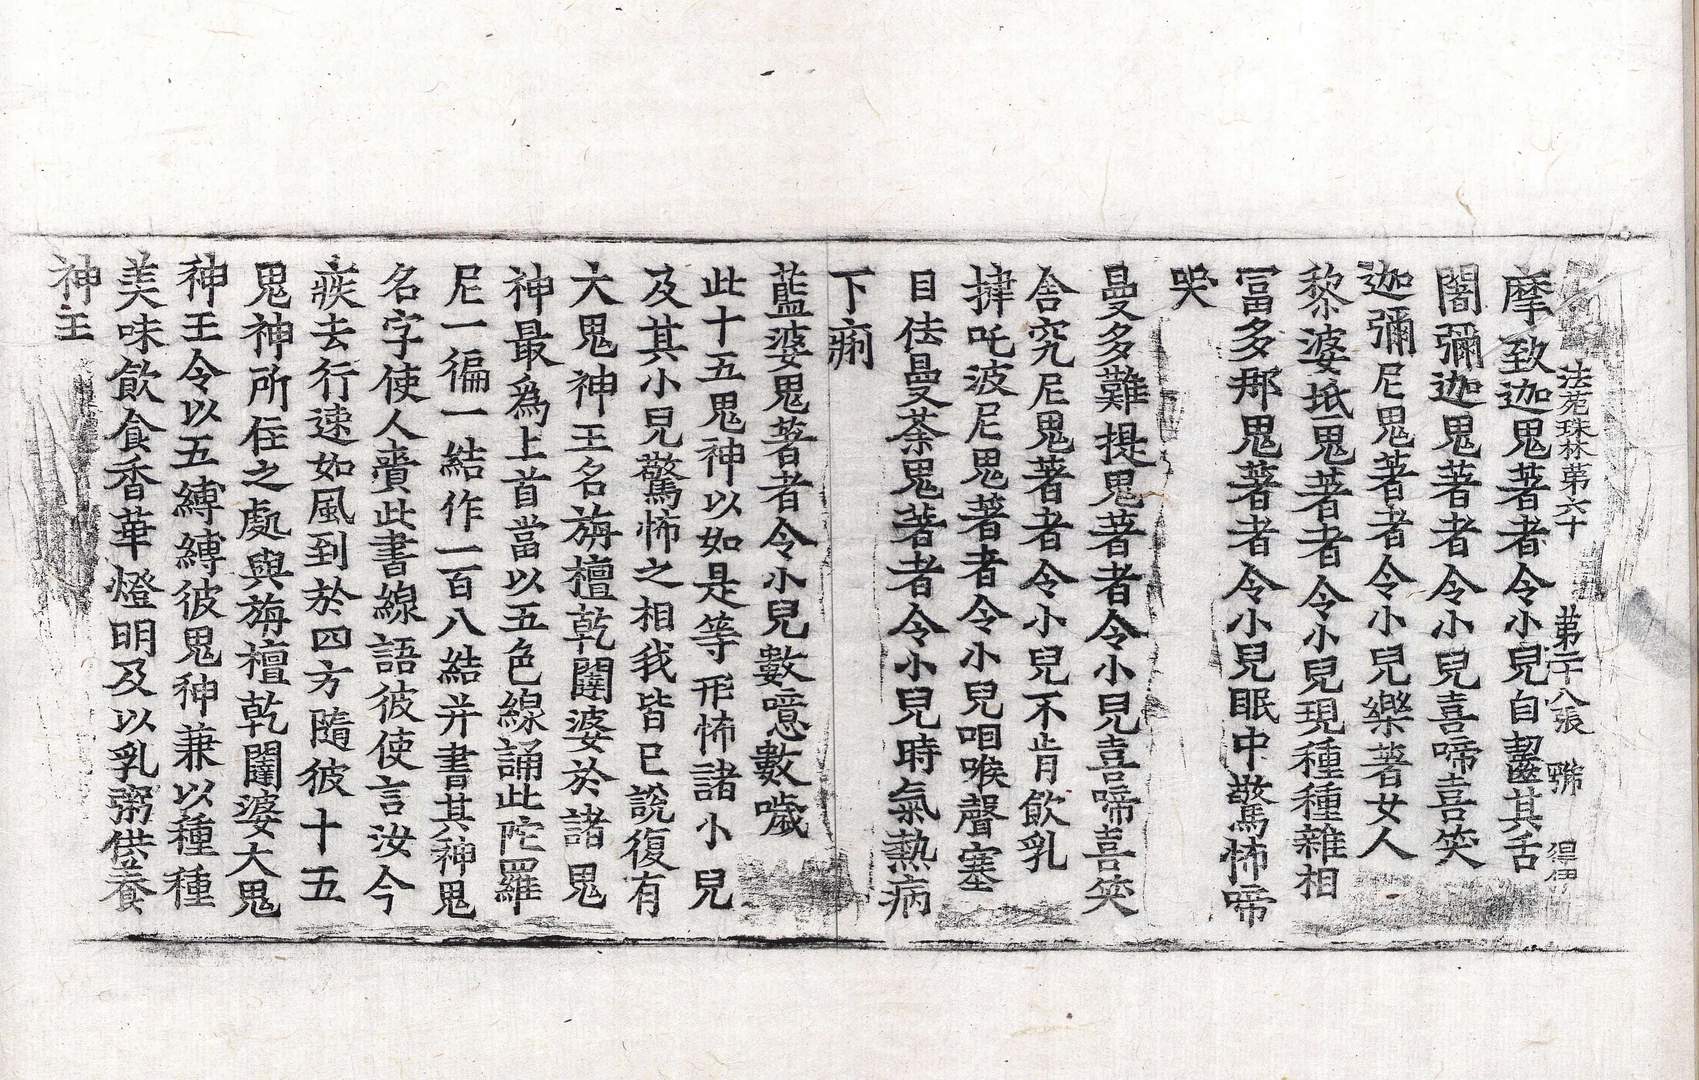 法苑珠林第六十 第二十八張 聮
摩致迦鬼著者令小兒自齧其舌
闍彌迦鬼著者令小兒喜啼喜笑
迦彌尼鬼著者令小兒樂著女人
黎婆坻鬼著者令小兒現種種雜相
冨多那鬼著者令小兒眠中驚怖啼
哭
曼多難提鬼著者令小兒喜啼喜笑
舍究尼鬼著者令小兒不肯飲乳
揵吒波尼鬼著者令小兒咽喉聲塞
目佉曼荼鬼著者令小兒時氣熱病
下痢
藍婆鬼著者令小兒數噫數噦
此十五鬼神以如是等形怖諸小兒
及其小兒驚怖之相我皆已說復有
大鬼神王名旃檀乾闥婆於諸鬼
神最爲上首當以五色線誦此陀羅
尼一徧一結作一百八結并書其神鬼
名字使人賷此書線語彼使言汝今
疾去行速如風到於四方隨彼十五
鬼神所住之處與旃檀乾闥婆大鬼
神王令以五縛縛彼鬼神兼以種種
美味飲食香華燈明及以乳粥供養
神王